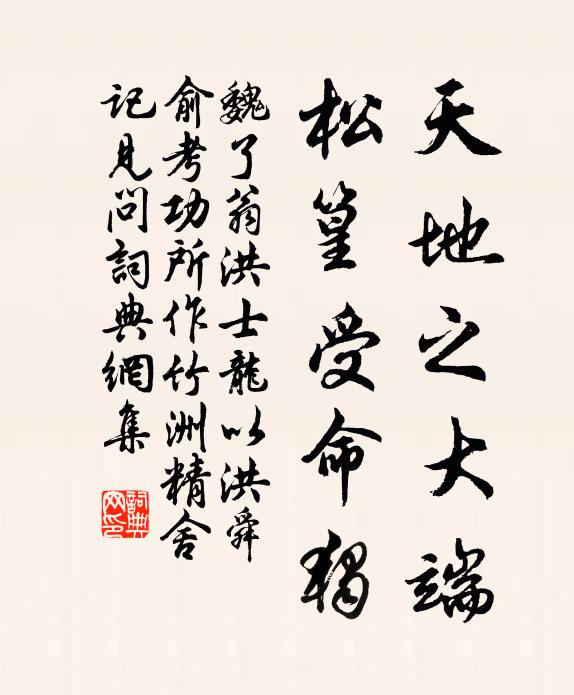 天地之大端
松篁受命獨
魏了翁洪士龍以洪舜
俞考功所作竹洲精舍
記見問詞典網集
詞典网印